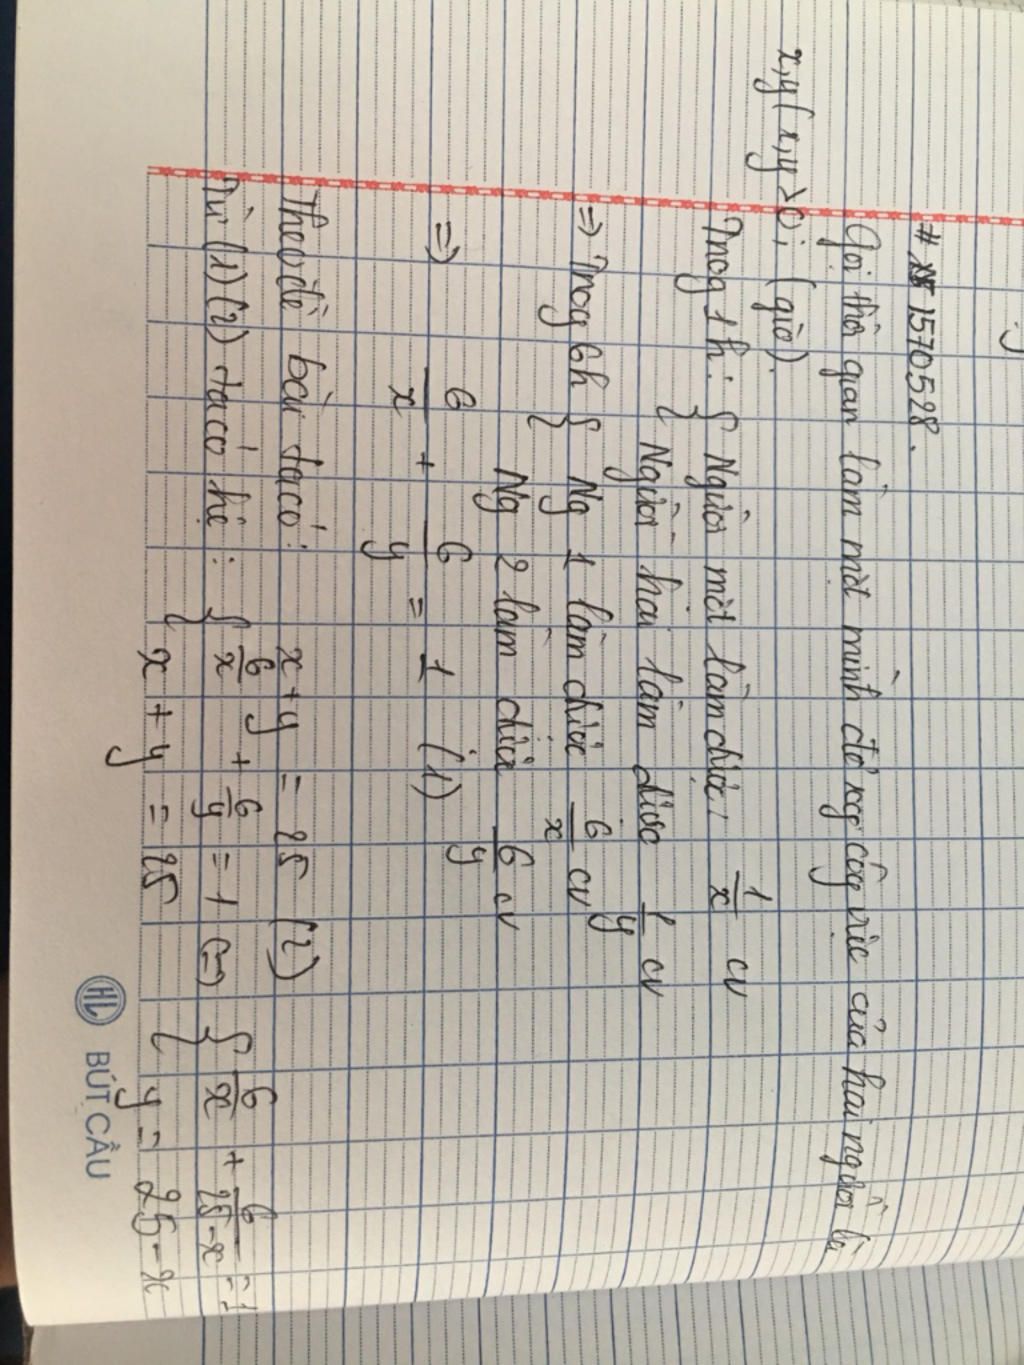 # 1570528.
Gọi thời gian làm một mình để xog côg việc của hai người là
x,y (x,y > 0; (giờ).
Trog 1h: { Người một làm được 1/x cv
Người hai làm được 1/y cv
=> Trog 6h { Ng 1 làm được 6/x cv
Ng 2 làm được 6/y cv
=> 6/x + 6/y = 1 (1)
Theo đề bài ta có: x + y = 25 (2)
Từ (1) (2) ta có hệ: { 6/x + 6/y = 1 (=) { 6/x + 6/25-x = 1
x + y = 25 y = 25-x
HL BÚT CẦU